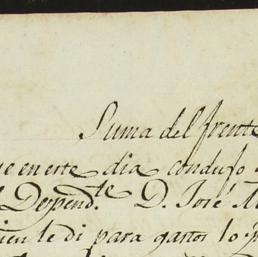 Suma del frente
en este dia condujo
Depend.te D. José
le di para gastos lo